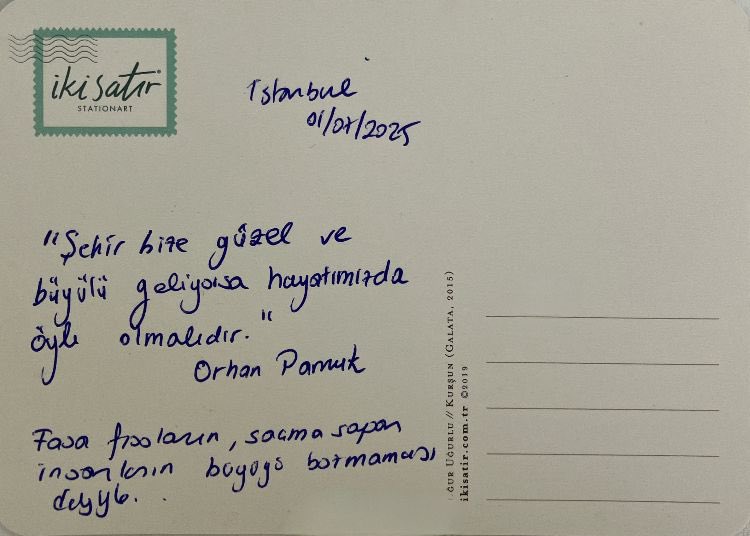 iki satır
STATIONART
Istanbul
01/07/2025
"Şehir bize güzel ve
büyülü geliyorsa hayatımızda
öyle olmalıdır."
Orhan Pamuk
Fasa fisoların, saçma sapan
insanların büyüyü bozmaması
ĞUR UĞURLU // KURŞUN (GALATA, 2015)
ikisatir.com.tr ©2019